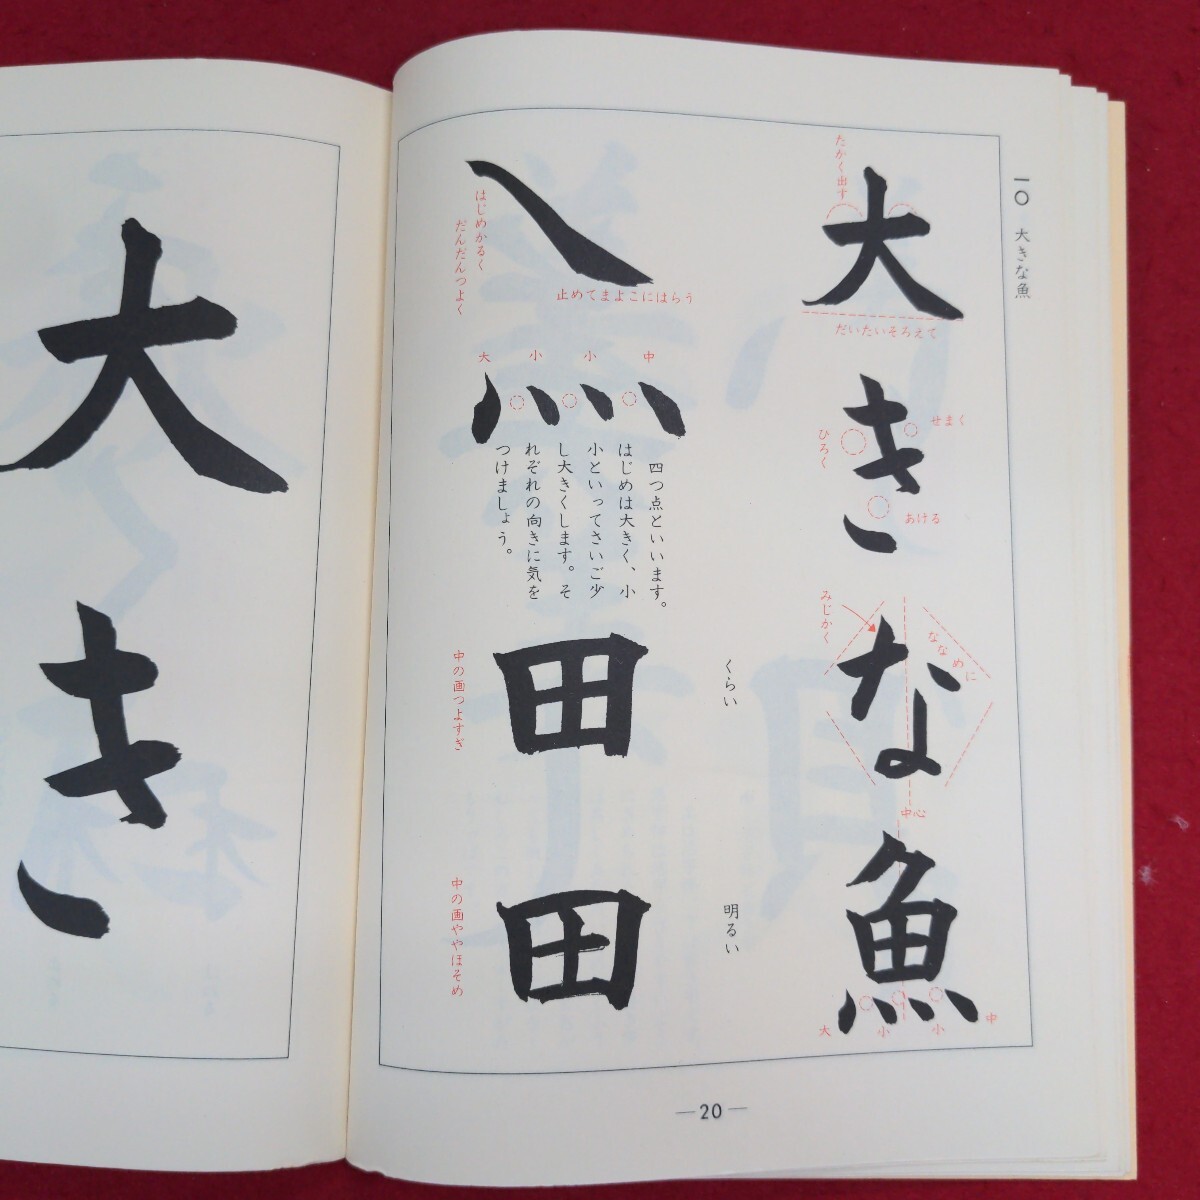 一〇 大きな魚
大きな魚
たかく出す
だいたいそろえて
せまく
ひろく
あける
みじかく
ななめに
中心
大 小 小 中
くらい
明るい
はじめかるく
だんだんつよく
止めてまよこにはらう
大 小 小 中
四つ点といいます。
はじめは大きく、小
小といってさいご少
し大きくします。そ
れぞれの向きに気を
つけましょう。
田
中の画つよすぎ
田
中の画ややほそめ
—20—
大き